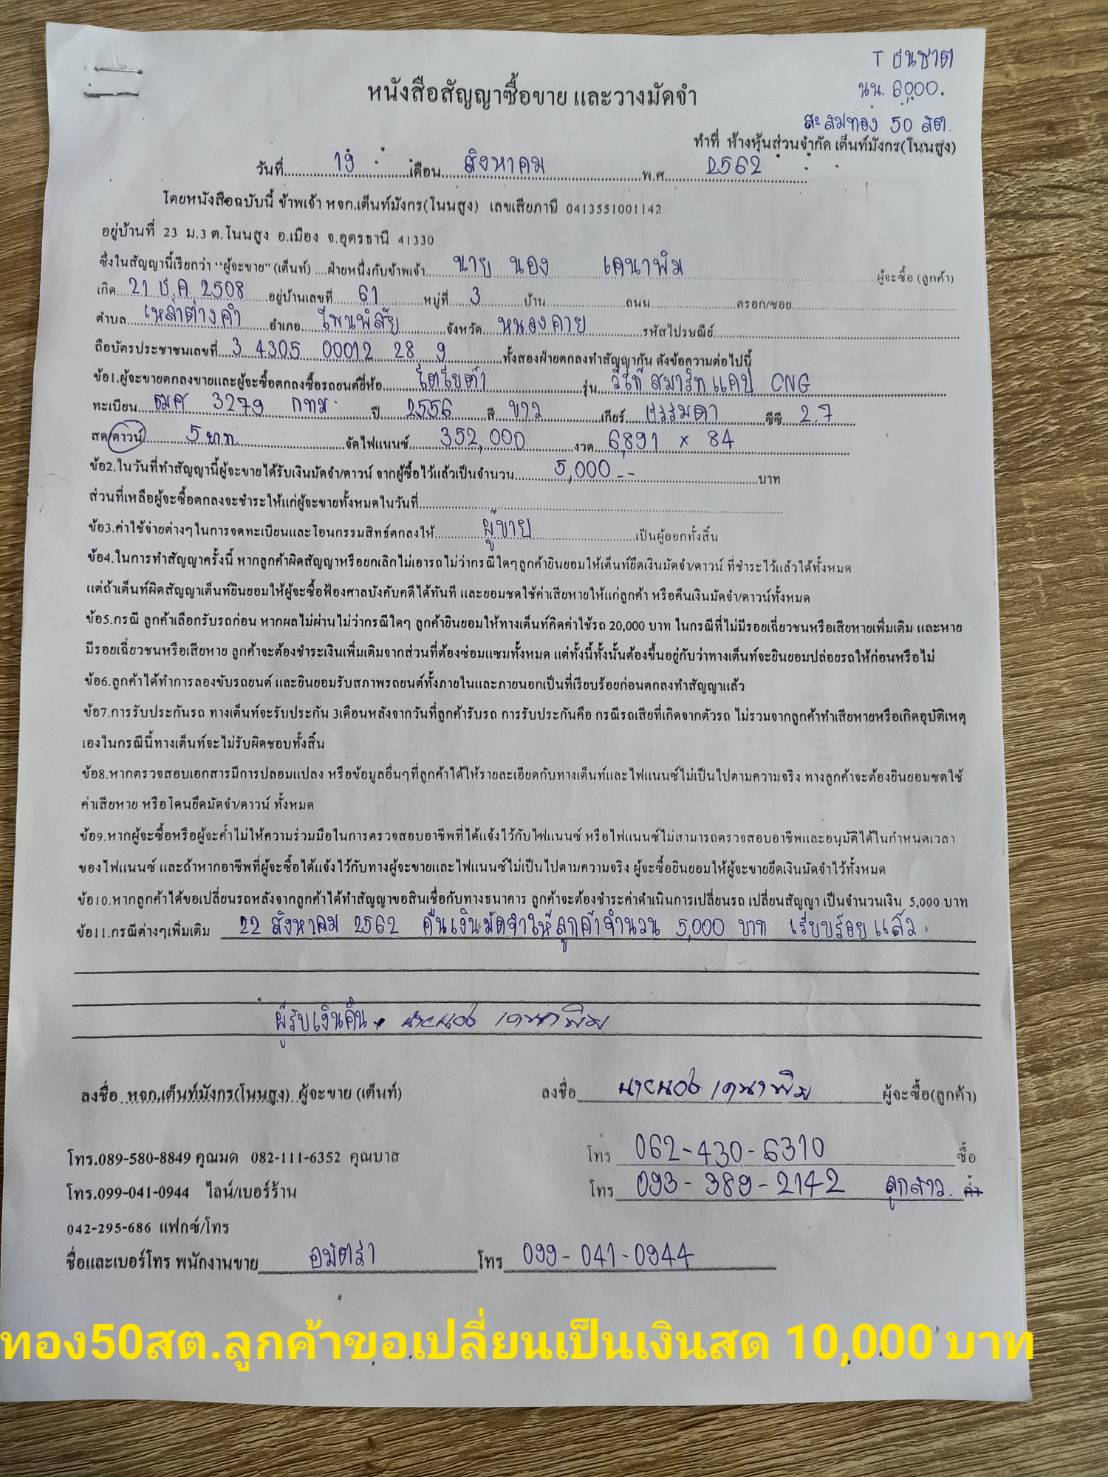 T ธนชาต
นน. 6000.
สะสมทอง 50 สต.
หนังสือสัญญาซื้อขาย และวางมัดจำ
ทำที่ ห้างหุ้นส่วนจำกัด เต็นท์มังกร(โนนสูง)
วันที่ 19 เดือน สิงหาคม พ.ศ. 2562
โดยหนังสือฉบับนี้ ข้าพเจ้า หจก.เต็นท์มังกร(โนนสูง) เลขเสียภาษี 0413551001142
อยู่บ้านที่ 23 ม.3 ต.โนนสูง อ.เมือง จ.อุดรธานี 41330
ซึ่งในสัญญานี้เรียกว่า "ผู้จะขาย" (เต็นท์) ....ฝ่ายหนึ่งกับข้าพเจ้า นาย นอง เคนาพิม ผู้จะซื้อ (ลูกค้า)
เกิด 21 ธ.ค. 2508 อยู่บ้านเลขที่ 61 หมู่ที่ 3 บ้าน ถนน ตรอก/ซอย
ตำบล เหล่าต่างคำ อำเภอ โพนพิสัย จังหวัด หนองคาย รหัสไปรษณีย์
ถือบัตรประชาชนเลขที่ 3 4305 00012 28 9 ทั้งสองฝ่ายตกลงทำสัญญากัน ดังข้อความต่อไปนี้
ข้อ1.ผู้จะขายตกลงขายและผู้จะซื้อตกลงซื้อรถยนต์ยี่ห้อ โตโยต้า รุ่น วีโก้ สมาร์ทแคป CNG
ทะเบียน ฒศ 3279 กทม. ปี 2556 สี ขาว เกียร์ ธรรมดา ซีซี 2.7
สด/ดาวน์ 5 บาท จัดไฟแนนซ์ 352,000 งวด 6891 × 84
ข้อ2.ในวันที่ทำสัญญานี้ผู้จะขายได้รับเงินมัดจำ/ดาวน์ จากผู้ซื้อไว้แล้วเป็นจำนวน 5,000.- บาท
ส่วนที่เหลือผู้จะซื้อตกลงจะชำระให้แก่ผู้จะขายทั้งหมดในวันที่
ข้อ3.ค่าใช้จ่ายต่างๆในการจดทะเบียนและโอนกรรมสิทธ์ตกลงให้ ผู้ขาย เป็นผู้ออกทั้งสิ้น
ข้อ4.ในการทำสัญญาครั้งนี้ หากลูกค้าผิดสัญญาหรือยกเลิกไม่เอารถไม่ว่ากรณีใดๆลูกค้ายินยอมให้เต็นท์ยึดเงินมัดจำ/ดาวน์ ที่ชำระไว้แล้วได้ทั้งหมด
แต่ถ้าเต็นท์ผิดสัญญาเต็นท์ยินยอมให้ผู้จะซื้อฟ้องศาลบังคับคดีได้ทันที และยอมชดใช้ค่าเสียหายให้แก่ลูกค้า หรือคืนเงินมัดจำ/ดาวน์ทั้งหมด
ข้อ5.กรณี ลูกค้าเลือกรับรถก่อน หากผลไม่ผ่านไม่ว่ากรณีใดๆ ลูกค้ายินยอมให้ทางเต็นท์คิดค่าใช้รถ 20,000 บาท ในกรณีที่ไม่มีรอยเฉี่ยวชนหรือเสียหายเพิ่มเติม และหาย
มีรอยเฉี่ยวชนหรือเสียหาย ลูกค้าจะต้องชำระเงินเพิ่มเติมจากส่วนที่ต้องซ่อมแซมทั้งหมด แต่ทั้งนี้ทั้งนั้นต้องขึ้นอยู่กับว่าทางเต็นท์จะยินยอมปล่อยรถให้ก่อนหรือไม่
ข้อ6.ลูกค้าได้ทำการลองขับรถยนต์ และยินยอมรับสภาพรถยนต์ทั้งภายในและภายนอกเป็นที่เรียบร้อยก่อนตกลงทำสัญญาแล้ว
ข้อ7.การรับประกันรถ ทางเต็นท์จะรับประกัน 3เดือนหลังจากวันที่ลูกค้ารับรถ การรับประกันคือ กรณีรถเสียที่เกิดจากตัวรถ ไม่รวมจากลูกค้าทำเสียหายหรือเกิดอุบัติเหตุ
เองในกรณีนี้ทางเต็นท์จะไม่รับผิดชอบทั้งสิ้น
ข้อ8.หากตรวจสอบเอกสารมีการปลอมแปลง หรือข้อมูลอื่นๆที่ลูกค้าได้ให้รายละเอียดกับทางเต็นท์และไฟแนนซ์ไม่เป็นไปตามความจริง ทางลูกค้าจะต้องยินยอมชดใช้
ค่าเสียหาย หรือโดนยึดมัดจำ/ดาวน์ ทั้งหมด
ข้อ9.หากผู้จะซื้อหรือผู้จะค้ำไม่ให้ความร่วมมือในการตรวจสอบอาชีพที่ได้แจ้งไว้กับไฟแนนซ์ หรือไฟแนนซ์ไม่สามารถตรวจสอบอาชีพและอนุมัติได้ในกำหนดเวลา
ของไฟแนนซ์ และถ้าหากอาชีพที่ผู้จะซื้อได้แจ้งไว้กับทางผู้จะขายและไฟแนนซ์ไม่เป็นไปตามความจริง ผู้จะซื้อยินยอมให้ผู้จะขายยึดเงินมัดจำไว้ทั้งหมด
ข้อ10.หากลูกค้าได้ขอเปลี่ยนรถหลังจากลูกค้าได้ทำสัญญาขอสินเชื่อกับทางธนาคาร ลูกค้าจะต้องชำระค่าดำเนินการเปลี่ยนรถ เปลี่ยนสัญญา เป็นจำนวนเงิน 5,000 บาท
ข้อ11.กรณีต่างๆเพิ่มเติม 22 สิงหาคม 2562 คืนเงินมัดจำให้ลูกค้าจำนวน 5,000 บาท เรียบร้อยแล้ว.
ผู้รับเงินคืน นายนอง เคนาพิม
ลงชื่อ หจก.เต็นท์มังกร(โนนสูง) ผู้จะขาย (เต็นท์) ลงชื่อ นายนอง เคนาพิม ผู้จะซื้อ(ลูกค้า)
โทร.089-580-8849 คุณมด 082-111-6352 คุณบาส โทร 062-430-6310 ซื้อ
โทร.099-041-0944 ไลน์/เบอร์ร้าน โทร 093-989-2142 ลูกสาว. ค้ำ
042-295-686 แฟกซ์/โทร
ชื่อและเบอร์โทร พนักงานขาย อมิตรา โทร 099-041-0944
ทอง50สต.ลูกค้าขอเปลี่ยนเป็นเงินสด 10,000 บาท